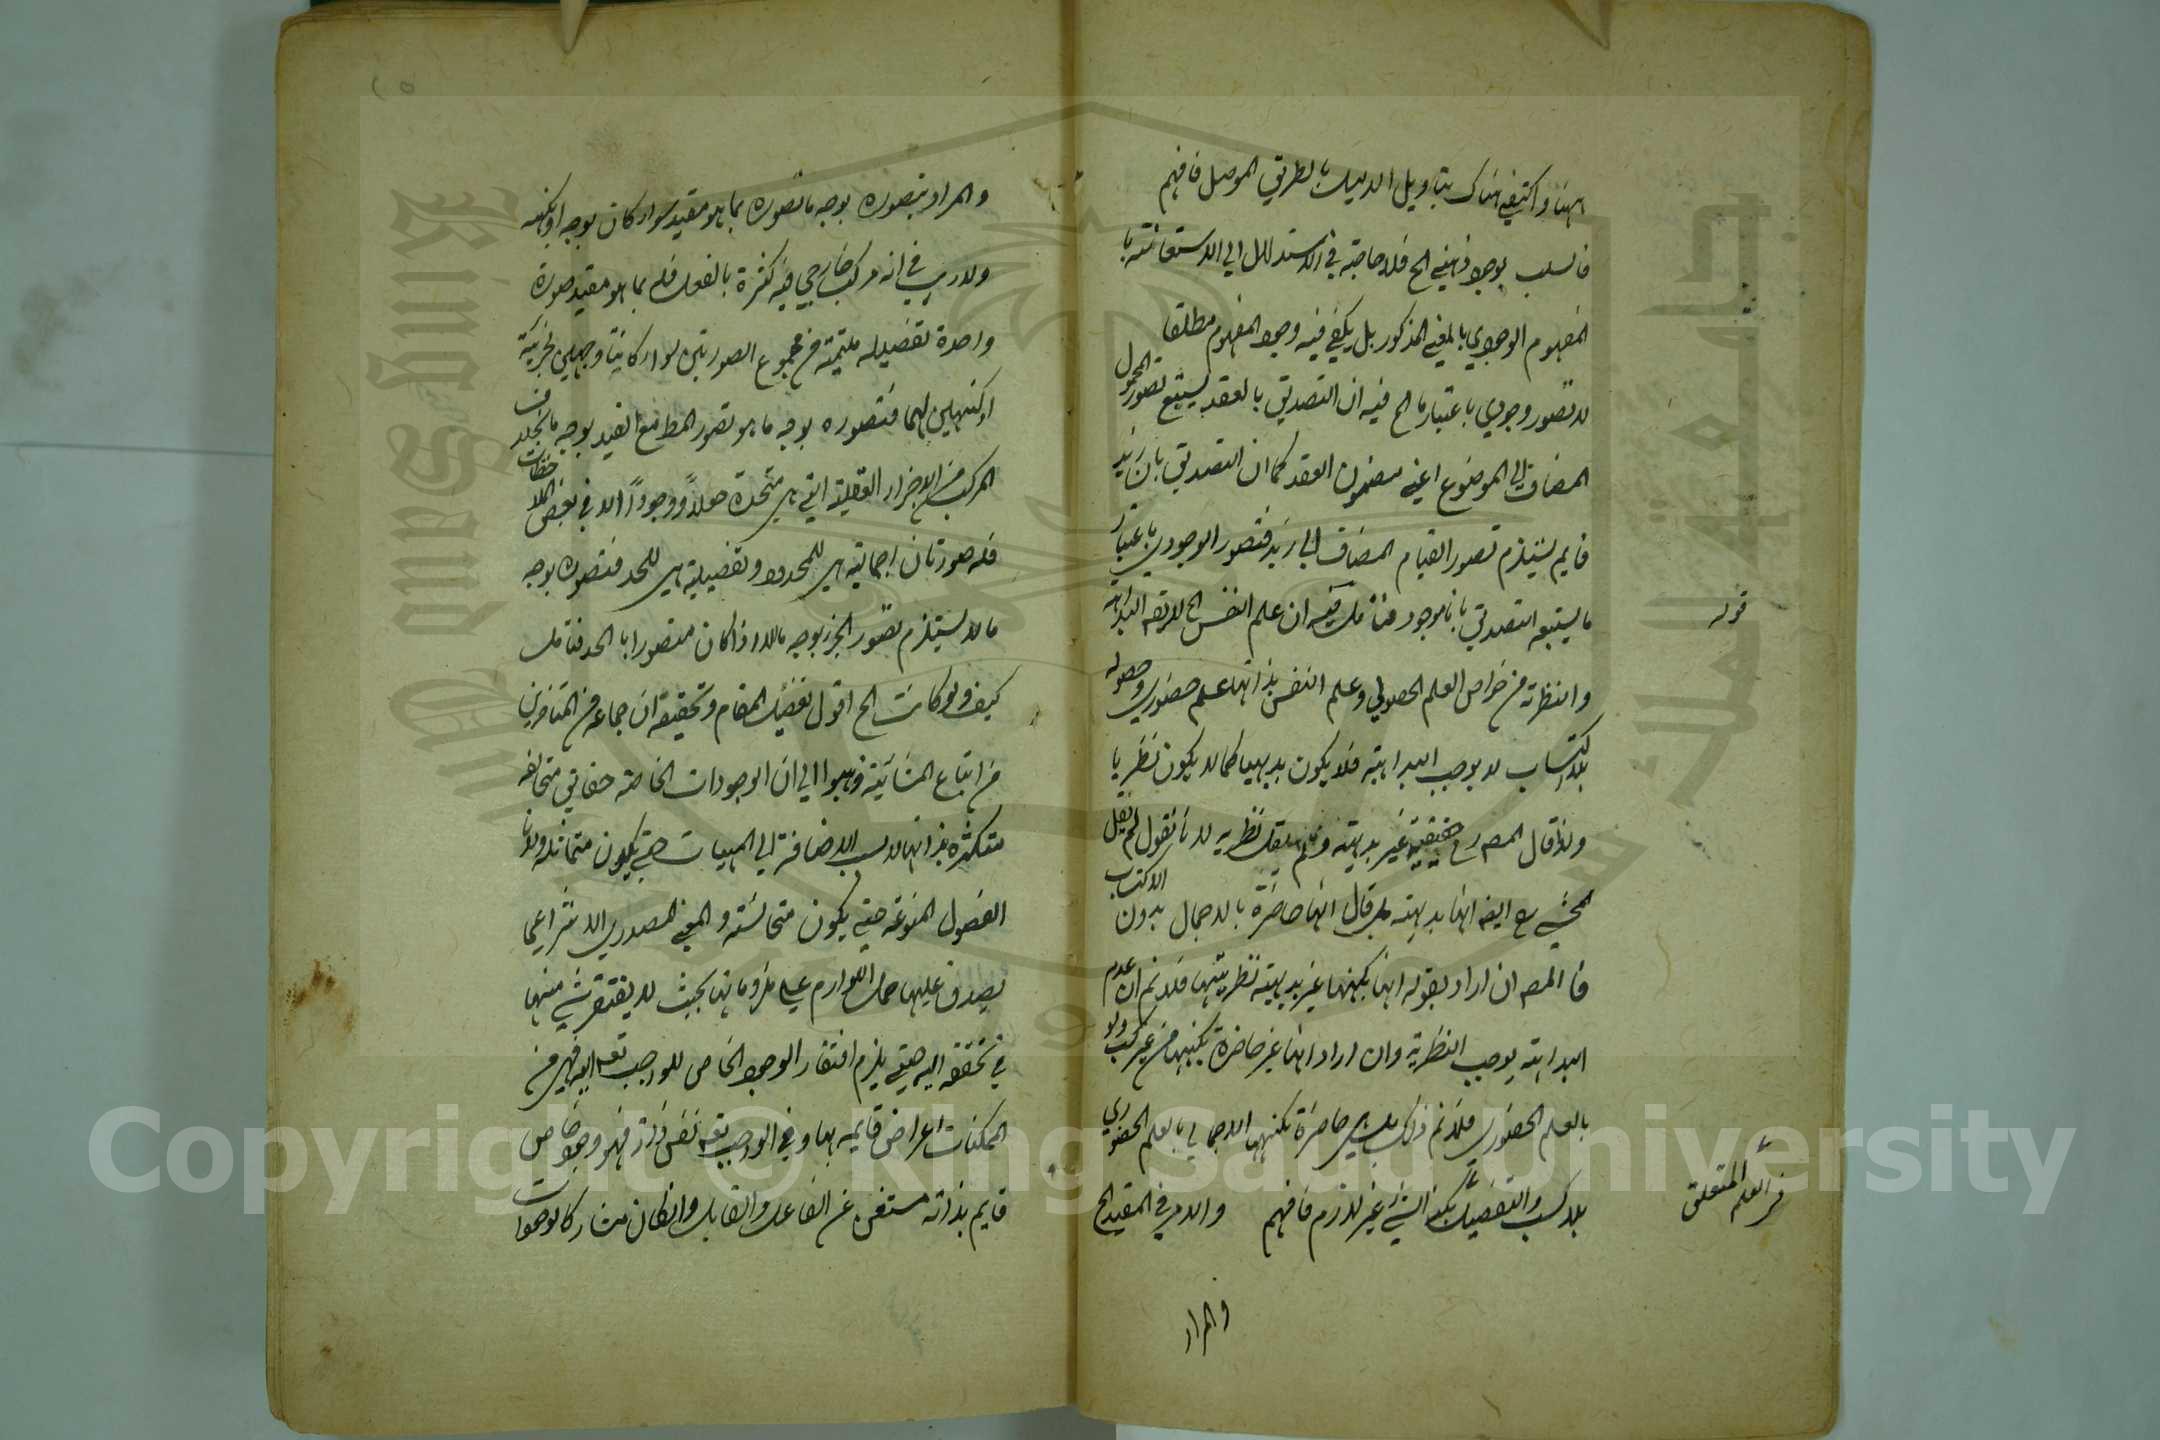 ههنا واكتفي هناك بتاويل الدليل بالطريق الموصل فافهم
فالسلب بوجود ذهني الخ فلا حاجة في الاستدلال الي الاستعانة با
لمفهوم الوجودي بالمعني المذكور بل يكفي فيه وجود المفهوم مطلقا
لا تصور وجودي باعتبار ما الخ فيه ان التصديق بالعقد يستتبع تصور المحمول
المضاف الي الموضوع اعني مضمون العقد كما ان التصديق بان زيد
قايم يستلزم تصور القيام المضاف الي زيد فتصور الوجودي باعتبار
ما يستتبعه التصديق بانا موجود فتامل فيه ان علم النفس الخ البداهة
قوله
والنظرية من خواص العلم الحصولي وعلم النفس بذاتها علم حضوري وحصوله
بلا اكتساب لا يوجب البداهة فلا يكون بديهيا كما لا يكون نظريا
ولذا قال المصنف حقيقته غير بديهية ولم يقل نظرية لانا نقول لم يقل
المحشي ايضا انها بديهية بل قال انها حاضرة بالاجمال بدون الاكتساب
فالمصنف ان اراد بقوله انها بكنهها غير بديهية نظريتها فلا نم ان عدم
البداهة يوجب النظرية وان اراد انها غير حاضرة بكنهها من غير كسب ولو
بالعلم الحضوري فلا نم ذلك بل هي حاضرة بكنهها الاجمالي بالعلم الحضوري
بلا كسب والتفصيل بكنه الشئ غير لازم فافهم والامر في المقيد الخ
في العلم المتعلق
والمراد
والمراد بتصوره بوجه ما تصوره بما هو مقيد سواء كان بوجه او بكنهه
ولا ريب في انه مركب خارجي فيه كثرة بالفعل فله بما هو مقيد صورة
واحدة تفصيلية ملتئمة من مجموع الصورتين سواء كانتا وجهين لجزئيه
او كنهين لهما فتصوره بوجه ما هو تصور المطلق مع القيد بوجه ما بخلاف
المركب من الاجزاء العقلية التي هي متحدة جعلا ووجودا الا في بعض الملاحظات
فله صورتان اجمالية هي للمحدود وتفصيلية هي للحد فتصوره بوجه
ما لا يستلزم تصور الجزء بوجه ما الا اذا كان متصورا بالحد فتامل
كيف ولو كانت الخ اقول تفصيل المقام وتحقيقه ان جماعة من المتاخرين
من اتباع المشائية ذهبوا الي ان الوجودات الخاصة حقايق متخالفة
متكثرة بذاتها لا بسبب الاضافة الي المهيات حتي يكون متماثلة ولا با
لفصول المنوعة حتي يكون متجانسة والمعني المصدري الانتزاعي
يصدق عليها حمل اللوازم علي ملزوماتها بحيث لا يفتقر شئ منها
في تحققه اليه حتي يلزم افتقار الوجود الخاص للواجب تعالي اليه فهي من
الممكنات اعراض قايمة بها وفي الواجب تعالي نفس ذاته فهو وجود خاص
قايم بذاته مستغن عن الفاعل والقابل وان كان مشاركا لوجودات